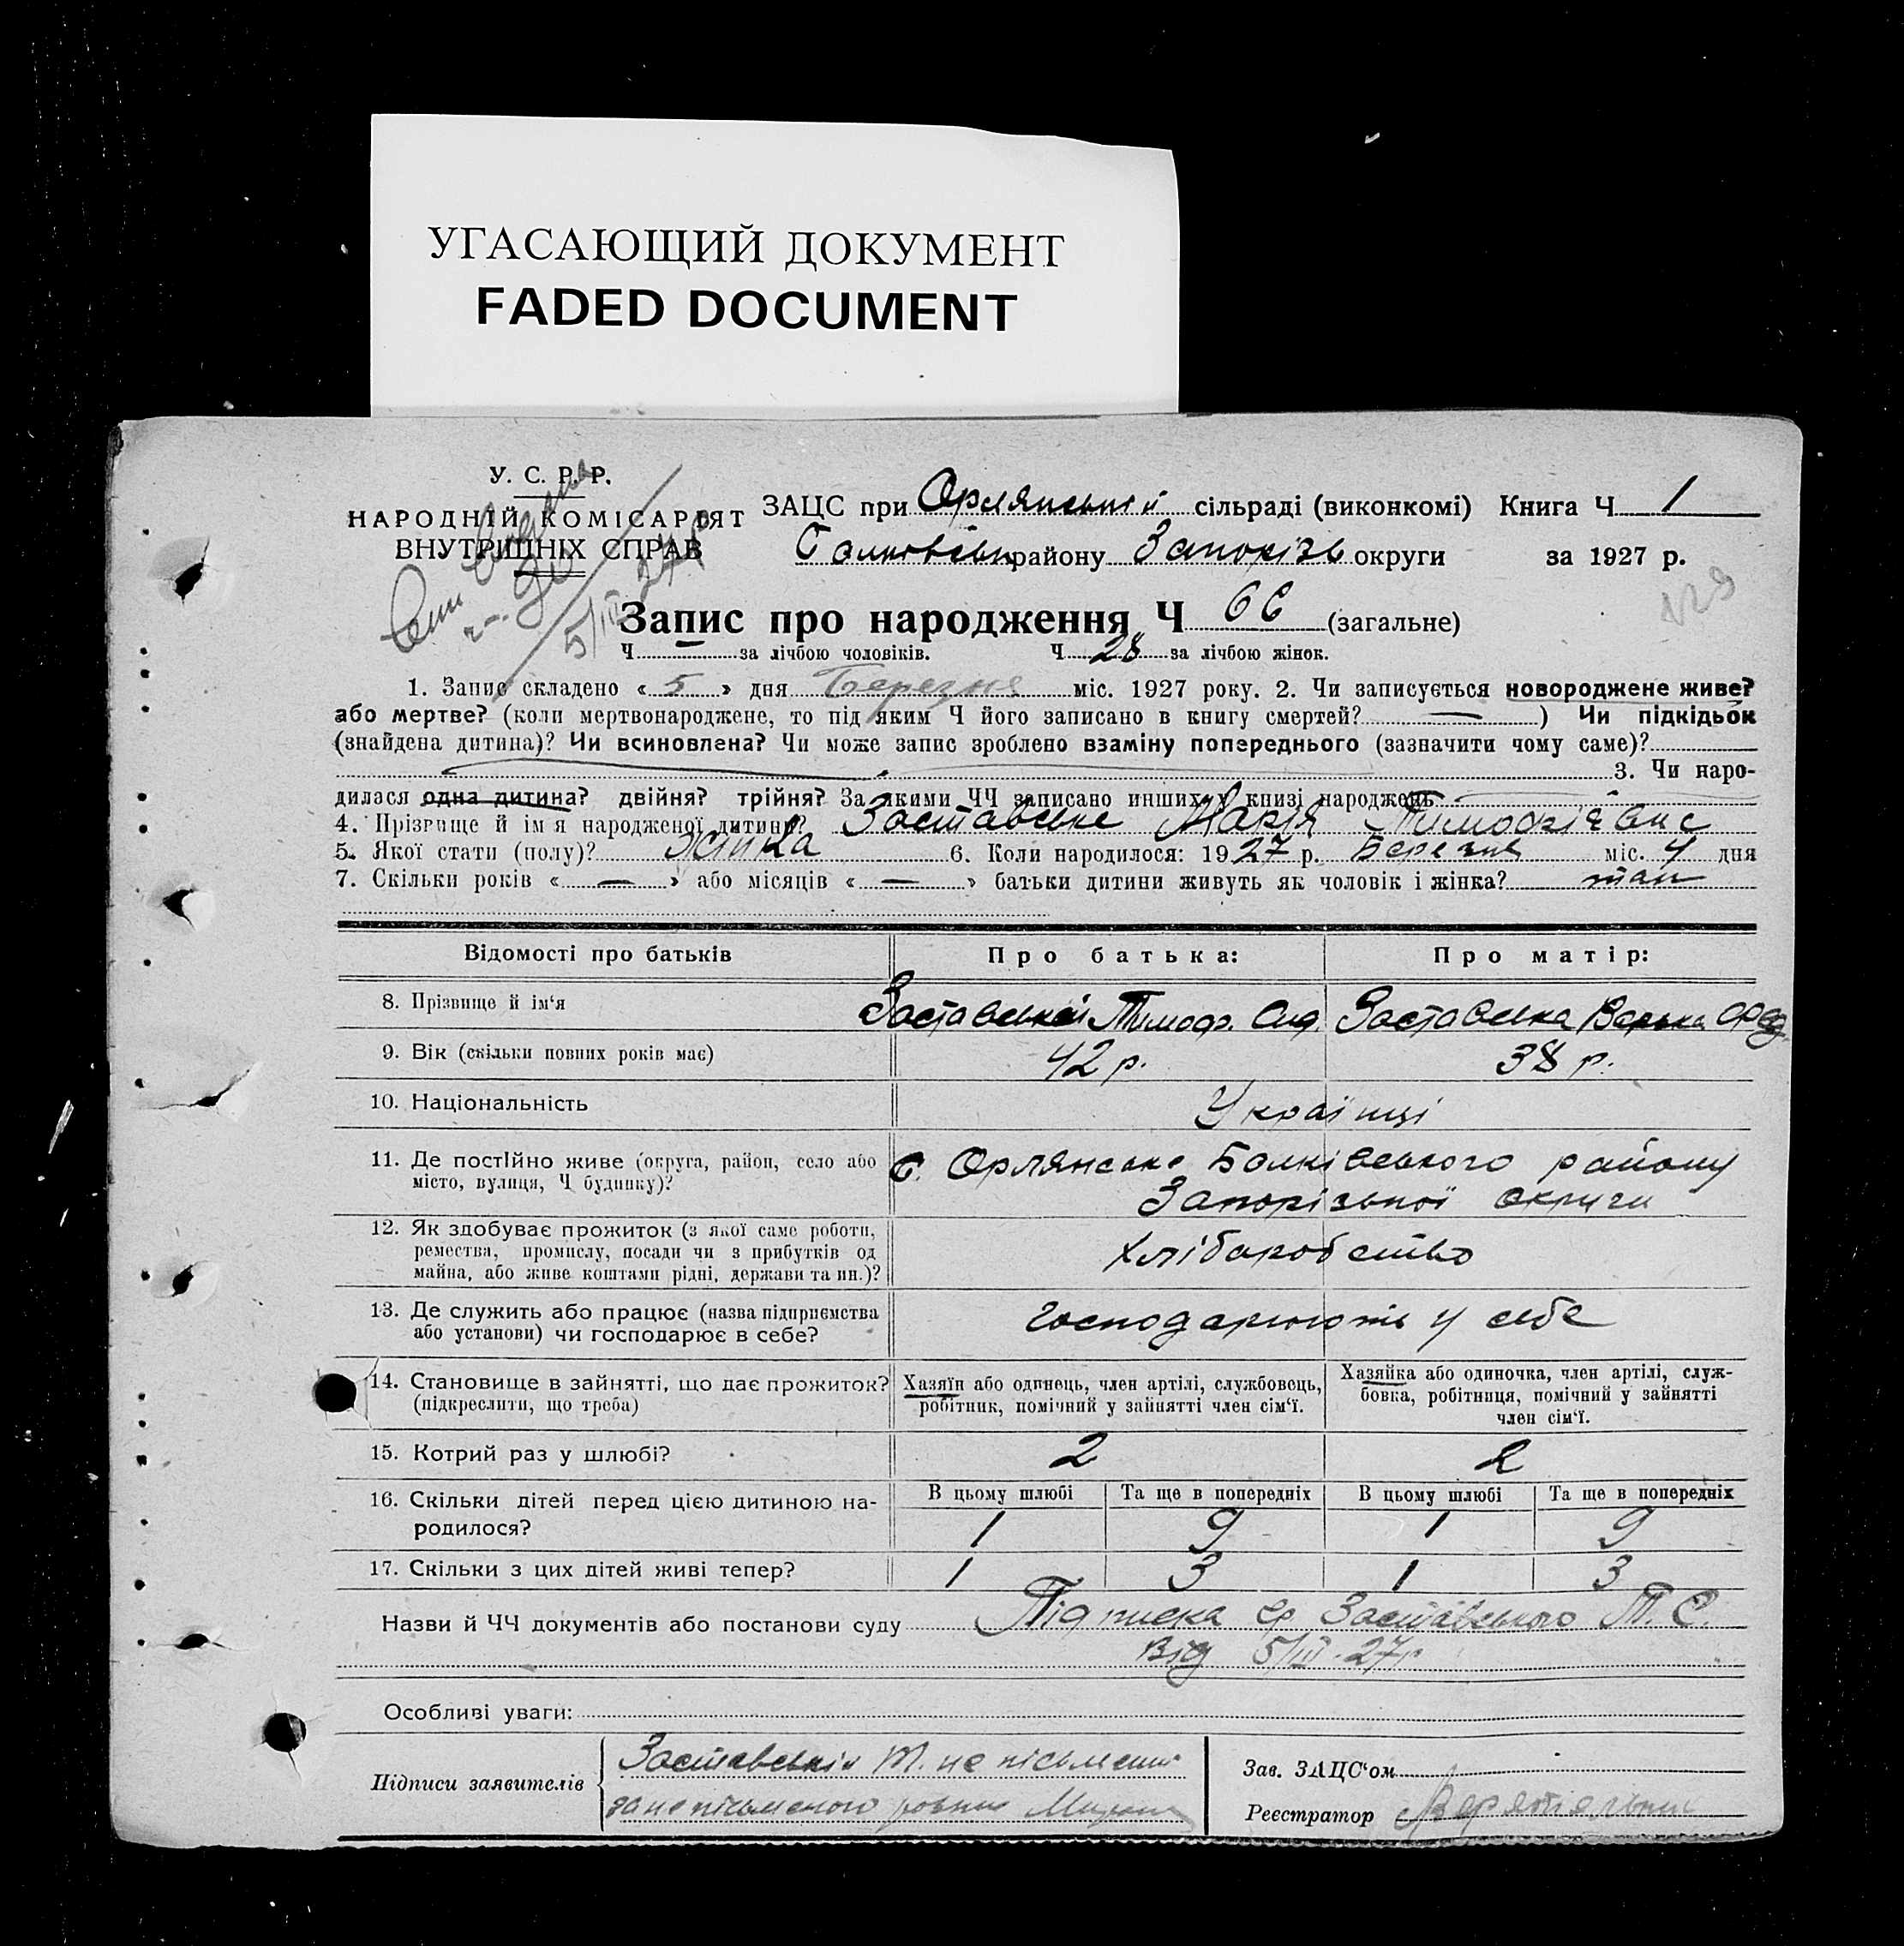 УГАСАЮЩИЙ ДОКУМЕНТ
FADED DOCUMENT
У. С. Р. Р.
НАРОДНІЙ КОМІСАРІЯТ
ВНУТРІШНІХ СПРАВ
5/III 27р
ЗАЦС при Орлянській сільраді (виконкомі) Книга Ч 1
району Запорізь округи за 1927 р.
Запис про народження Ч 66 (загальне)
Ч — за лічбою чоловіків. Ч 28 за лічбою жінок.
1. Запис складено « 5 » дня Березня міс. 1927 року. 2. Чи записується новороджене живе?
або мертве? (коли мертвонароджене, то під яким Ч його записано в книгу смертей? — ) Чи підкідьок
(знайдена дитина)? Чи всиновлена? Чи може запис зроблено взаміну попереднього (зазначити чому саме)?
3. Чи наро-
дилася одна дитина? двійня? трійня? За якими ЧЧ записано инших у книзі народжень
4. Прізвище й імя народженої дитини? Заставське Марія Тимофіївне
5. Якої стати (полу)? жінка 6. Коли народилося: 1927 р. Березня міс. 4 дня
7. Скільки років « — » або місяців « — » батьки дитини живуть як чоловік і жінка? так
Відомості про батьків Про батька: Про матір:
8. Прізвище й ім'я Заставській Тимоф. Сид. Заставська Варька Фед.
9. Вік (скільки повних років має) 42 р. 38 р.
10. Національність Українці
11. Де постІйно живе (округа, район, село або с. Орлянське Балківського району
місто, вулиця, Ч будинку)? Запорізької округи
12. Як здобуває прожиток (з якої саме роботи, хліборобство
ремества, промислу, посади чи з прибутків од
майна, або живе коштами рідні, держави та ин.)?
13. Де служить або працює (назва підприємства господарюють у себе
або установи) чи господарює в себе?
14. Становище в зайнятті, що дає прожиток? Хазяїн або одинець, член артілі, службовець, Хазяйка або одиночка, член артілі, служ-
(підкреслити, що треба) робітник, помічний у зайнятті член сім'ї. бовка, робітниця, помічний у зайнятті
член сім'ї.
15. Котрий раз у шлюбі? 2 2
16. Скільки дітей перед цією дитиною на- В цьому шлюбі Та ще в попередніх В цьому шлюбі Та ще в попередніх
родилося? 1 9 1 9
17. Скільки з цих дітей живі тепер? 1 3 1 3
Назви й ЧЧ документів або постанови суду Підписка гр Заставського Т. С.
Від 5/III-27р
Особливі уваги:
Підписи заявителів Заставській Т. не пісьмений
за непісьменого
Зав. ЗАЦС'ом
Реєстратор